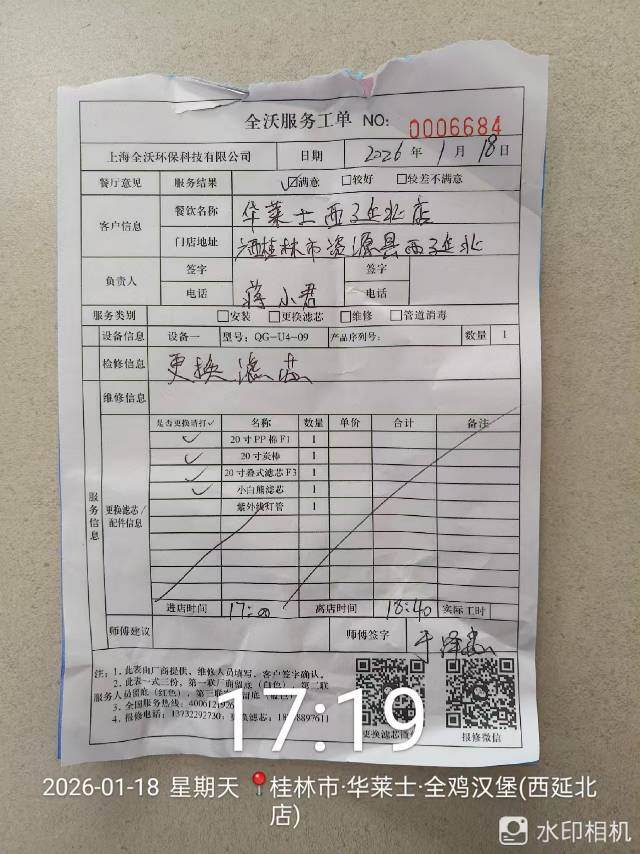 全沃服务工单 NO: 0006684
上海全沃环保科技有限公司 日期 2026年1月18日
餐厅意见 服务结果 ☑满意 □较好 □较差不满意
客户信息 餐饮名称 华莱士西延北店
门店地址 桂林市资源县西延北
负责人 签字 签字
电话 蒋小君 电话
服务类别 □安装 □更换滤芯 □维修 □管道消毒
设备信息 设备一 型号: QG-U4-09 产品序列号: 数量 1
检修信息 更换滤芯
维修信息
服务信息
更换滤芯/配件信息
是否更换请打✓ 名称 数量 单价 合计 备注
✓ 20寸PP棉F1 1
✓ 20寸炭棒 1
✓ 20寸叠式滤芯F3 1
✓ 小白熊滤芯 1
紫外线灯管 1
进店时间 17:00 离店时间 18:40 实际工时
师傅建议 师傅签字
注: 1. 此表由厂商提供, 维修人员填写, 客户签字确认。
2. 此表一式三份, 第一联厂商留底(白色), 第二联
服务人员留底(红色), 第三联
3. 全国服务热线: 4006121926
4. 报修电话: 13732292730; 更换滤芯:
更换滤芯微信 报修微信
17:19
2026-01-18 星期天 桂林市·华莱士·全鸡汉堡(西延北
店)
水印相机